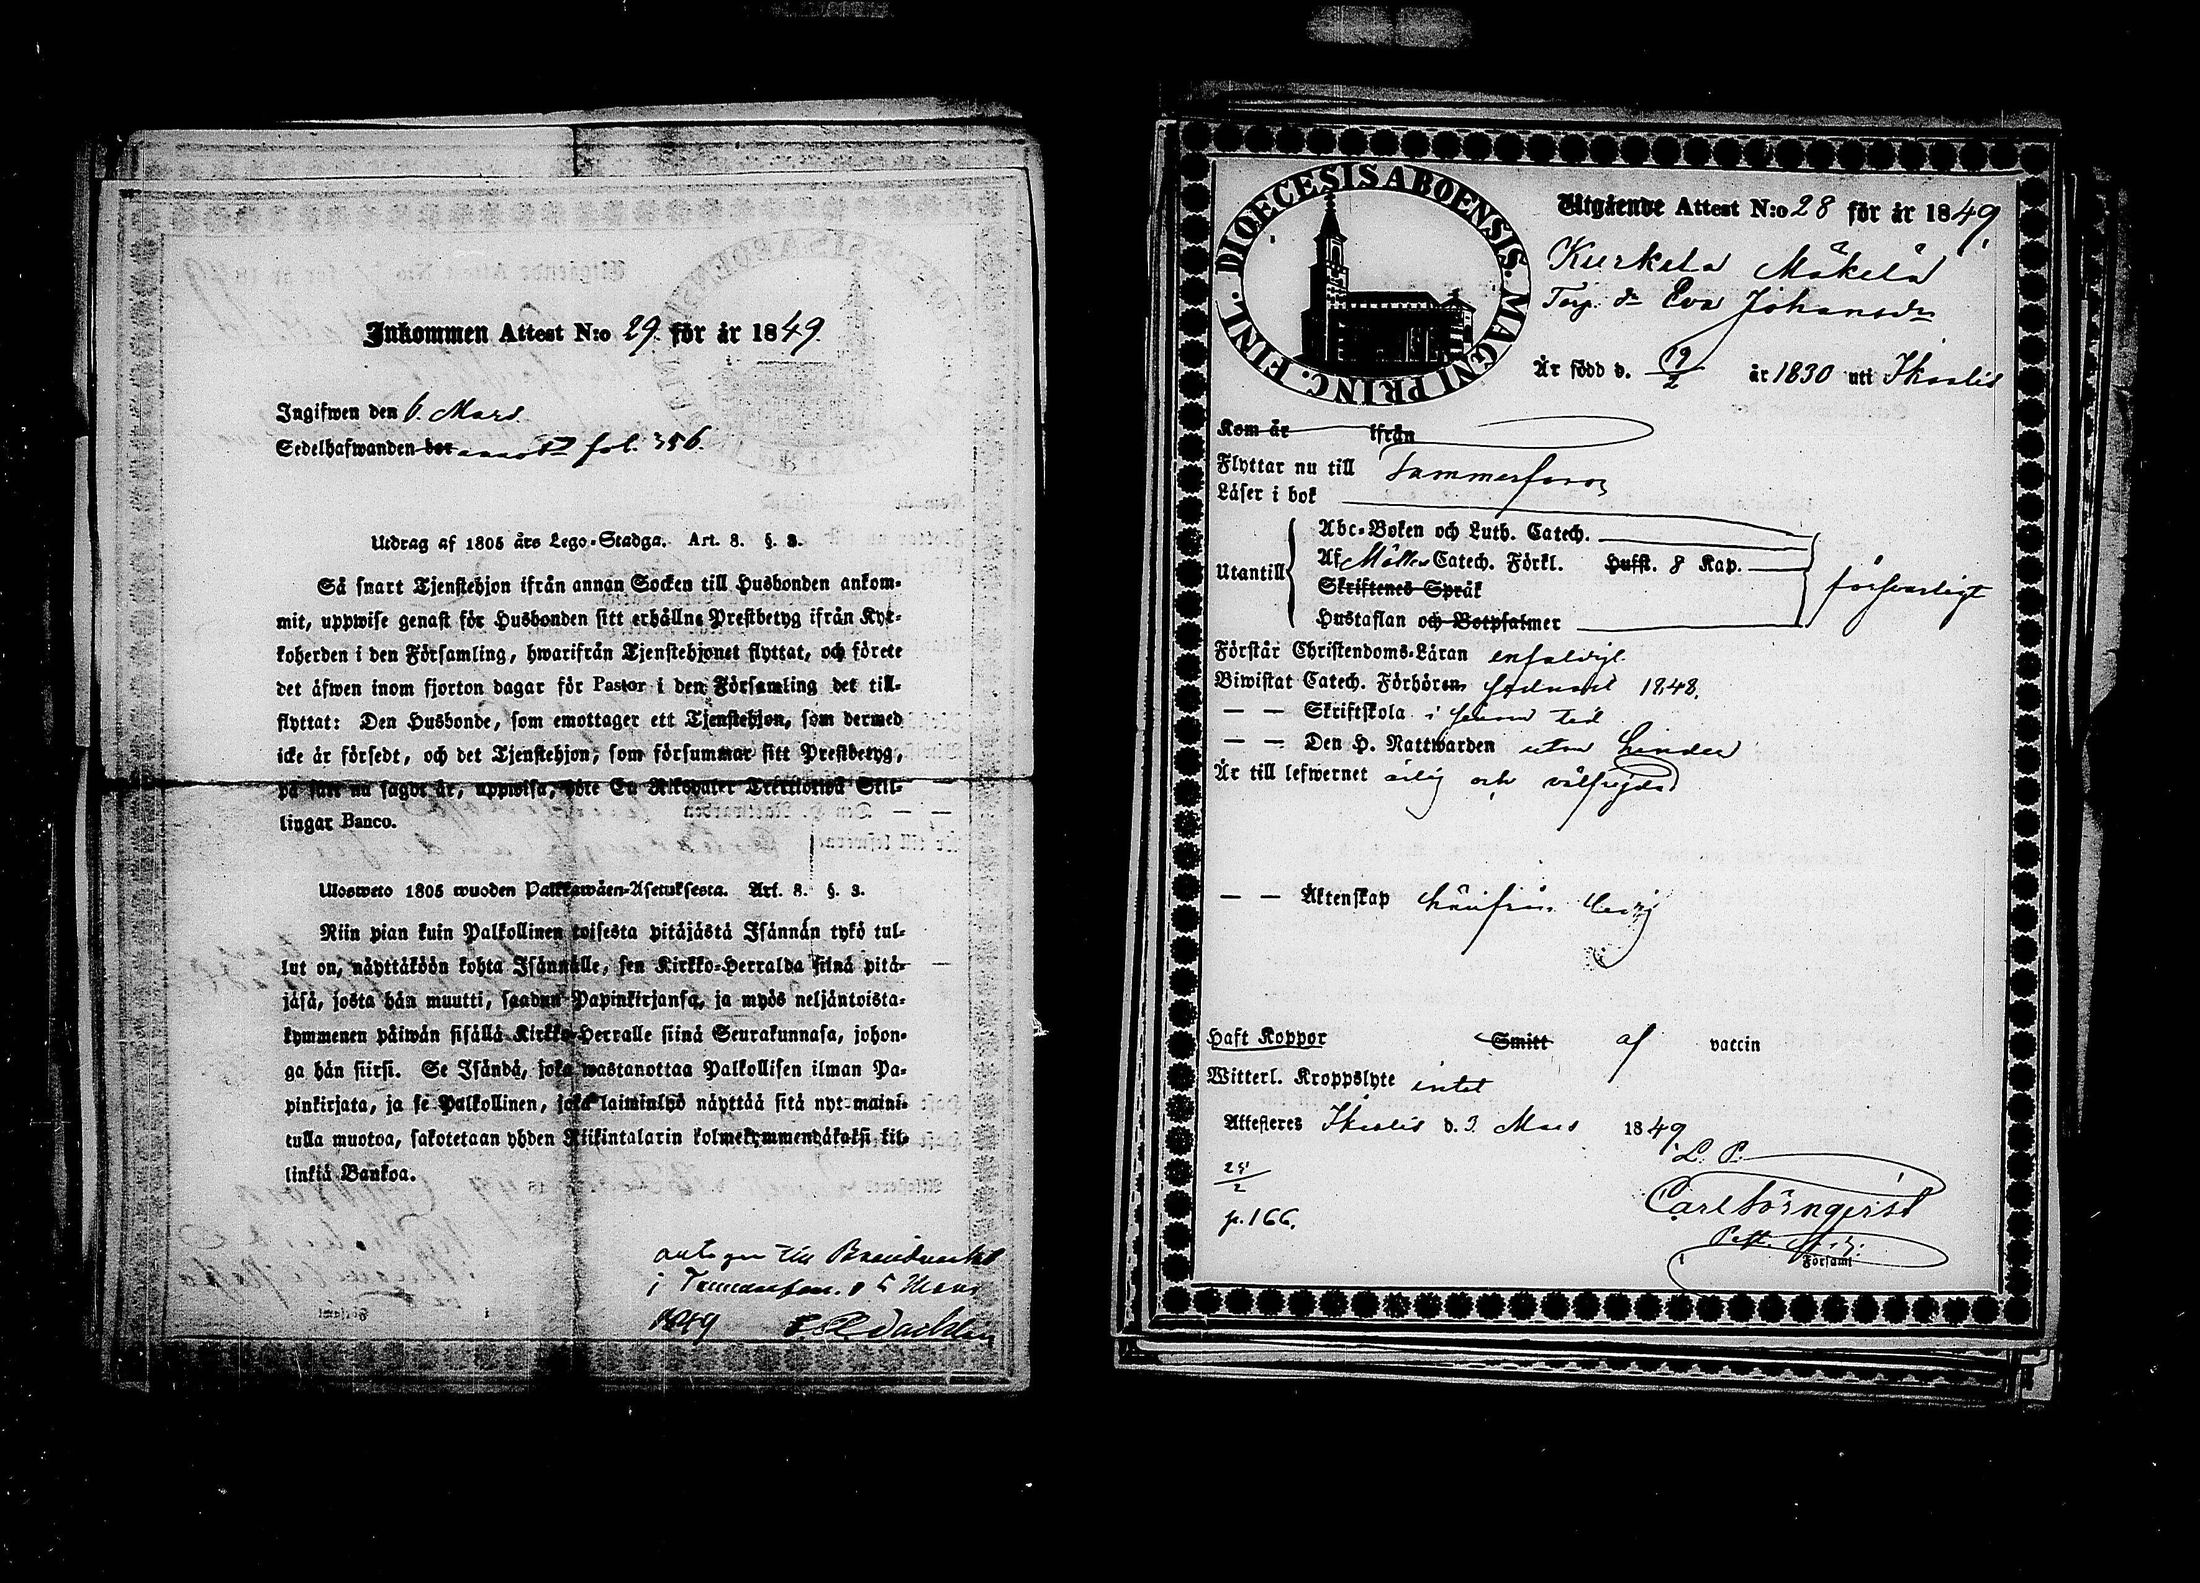 Inkommen Attest N:o 29. för år 1849.
Ingifwen den 6. Mars.
Sedelhafwanden bor fol. 356.
Utdrag af 1805 års Lego-Stadga. Art. 8. §. 3.
Så snart Tjenstehjon ifrån annan Socken till Husbonden ankom-
mit, uppwise genast för Husbonden sitt erhållne Prestbetyg ifrån Kyr-
koherden i den Församling, hwarifrån Tjenstehjonet flyttat, och förete
det äfwen inom fjorton dagar för Pastor i den Församling det till-
flyttat: Den Husbonde, som emottager ett Tjenstehjon, som dermed
icke är försedt, och det Tjenstehjon, som försummar sitt Prestbetyg,
på sätt nu sagdt är, uppwisa, böte En Riksdaler Trettiotwå Skil-
lingar Banco.
Ulosweto 1805 wuoden Palkkawäen-Asetuksesta. Art. 8. §. 3.
Niin pian kuin Palkollinen toisesta pitäjästä Isännän tykö tul-
lut on, näyttäköön kohta Isännälle, sen Kirkko-Herralda siinä pitä-
jäsä, josta hän muutti, saadun Papinkirjansa, ja myös neljäntoista-
kymmenen päiwän sisällä Kirkko-Herralle siinä Seurakunnasa, johon-
ga hän siirsi. Se Isändä, joka wastanottaa Palkollisen ilman Pa-
pinkirjata, ja se Palkollinen, joka laiminlyö näyttää sitä nyt maini-
tulla muotoa, sakotetaan yhden Riikintalarin kolmekymmendäkaksi kil-
linkiä Bankoa.
antagen till
i Tammerfors. d 5 Mars
1849
DIOECESIS ABOENSIS. MAGNI PRINC. FINL.
Utgående Attest N:o 28 för år 1849.
Kurkela Mäkelä
Torp. dr Eva Johansdr
Är född d. 19/2 år 1830 uti Ikalis
Kom år ifrån
Flyttar nu till Tammerfors
Läser i bok
Utantill
Abc-Boken och Luth. Catech.
Af Catech. Förkl. Huffl. 8 Kap.
Skriftenes Språk
Hustaflan och Botpsalmer
försvarligt
Förstår Christendoms-Läran enfaldigt.
Biwistat Catech. Förhören 1848.
— — Skriftskola i sinom tid
— — Den H. Nattwarden utan hinder
Är till lefwernet ärlig och välfrejdad
— — Äktenskap hinderfri
Haft Koppor Smitt af vaccin
Witterl. Kroppslyte intet
Attesteres Ikalis d. 3. Mars 1849
L. P.
Carl Törnqvist
Församl
25/2
p. 166.